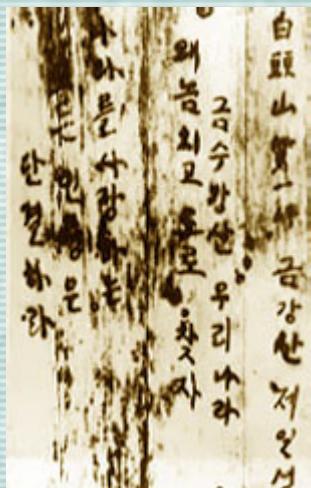 白頭山 금강산
금수강산 우리나라
왜놈치고 도로 찾자
나라를 사랑하는
단결하라